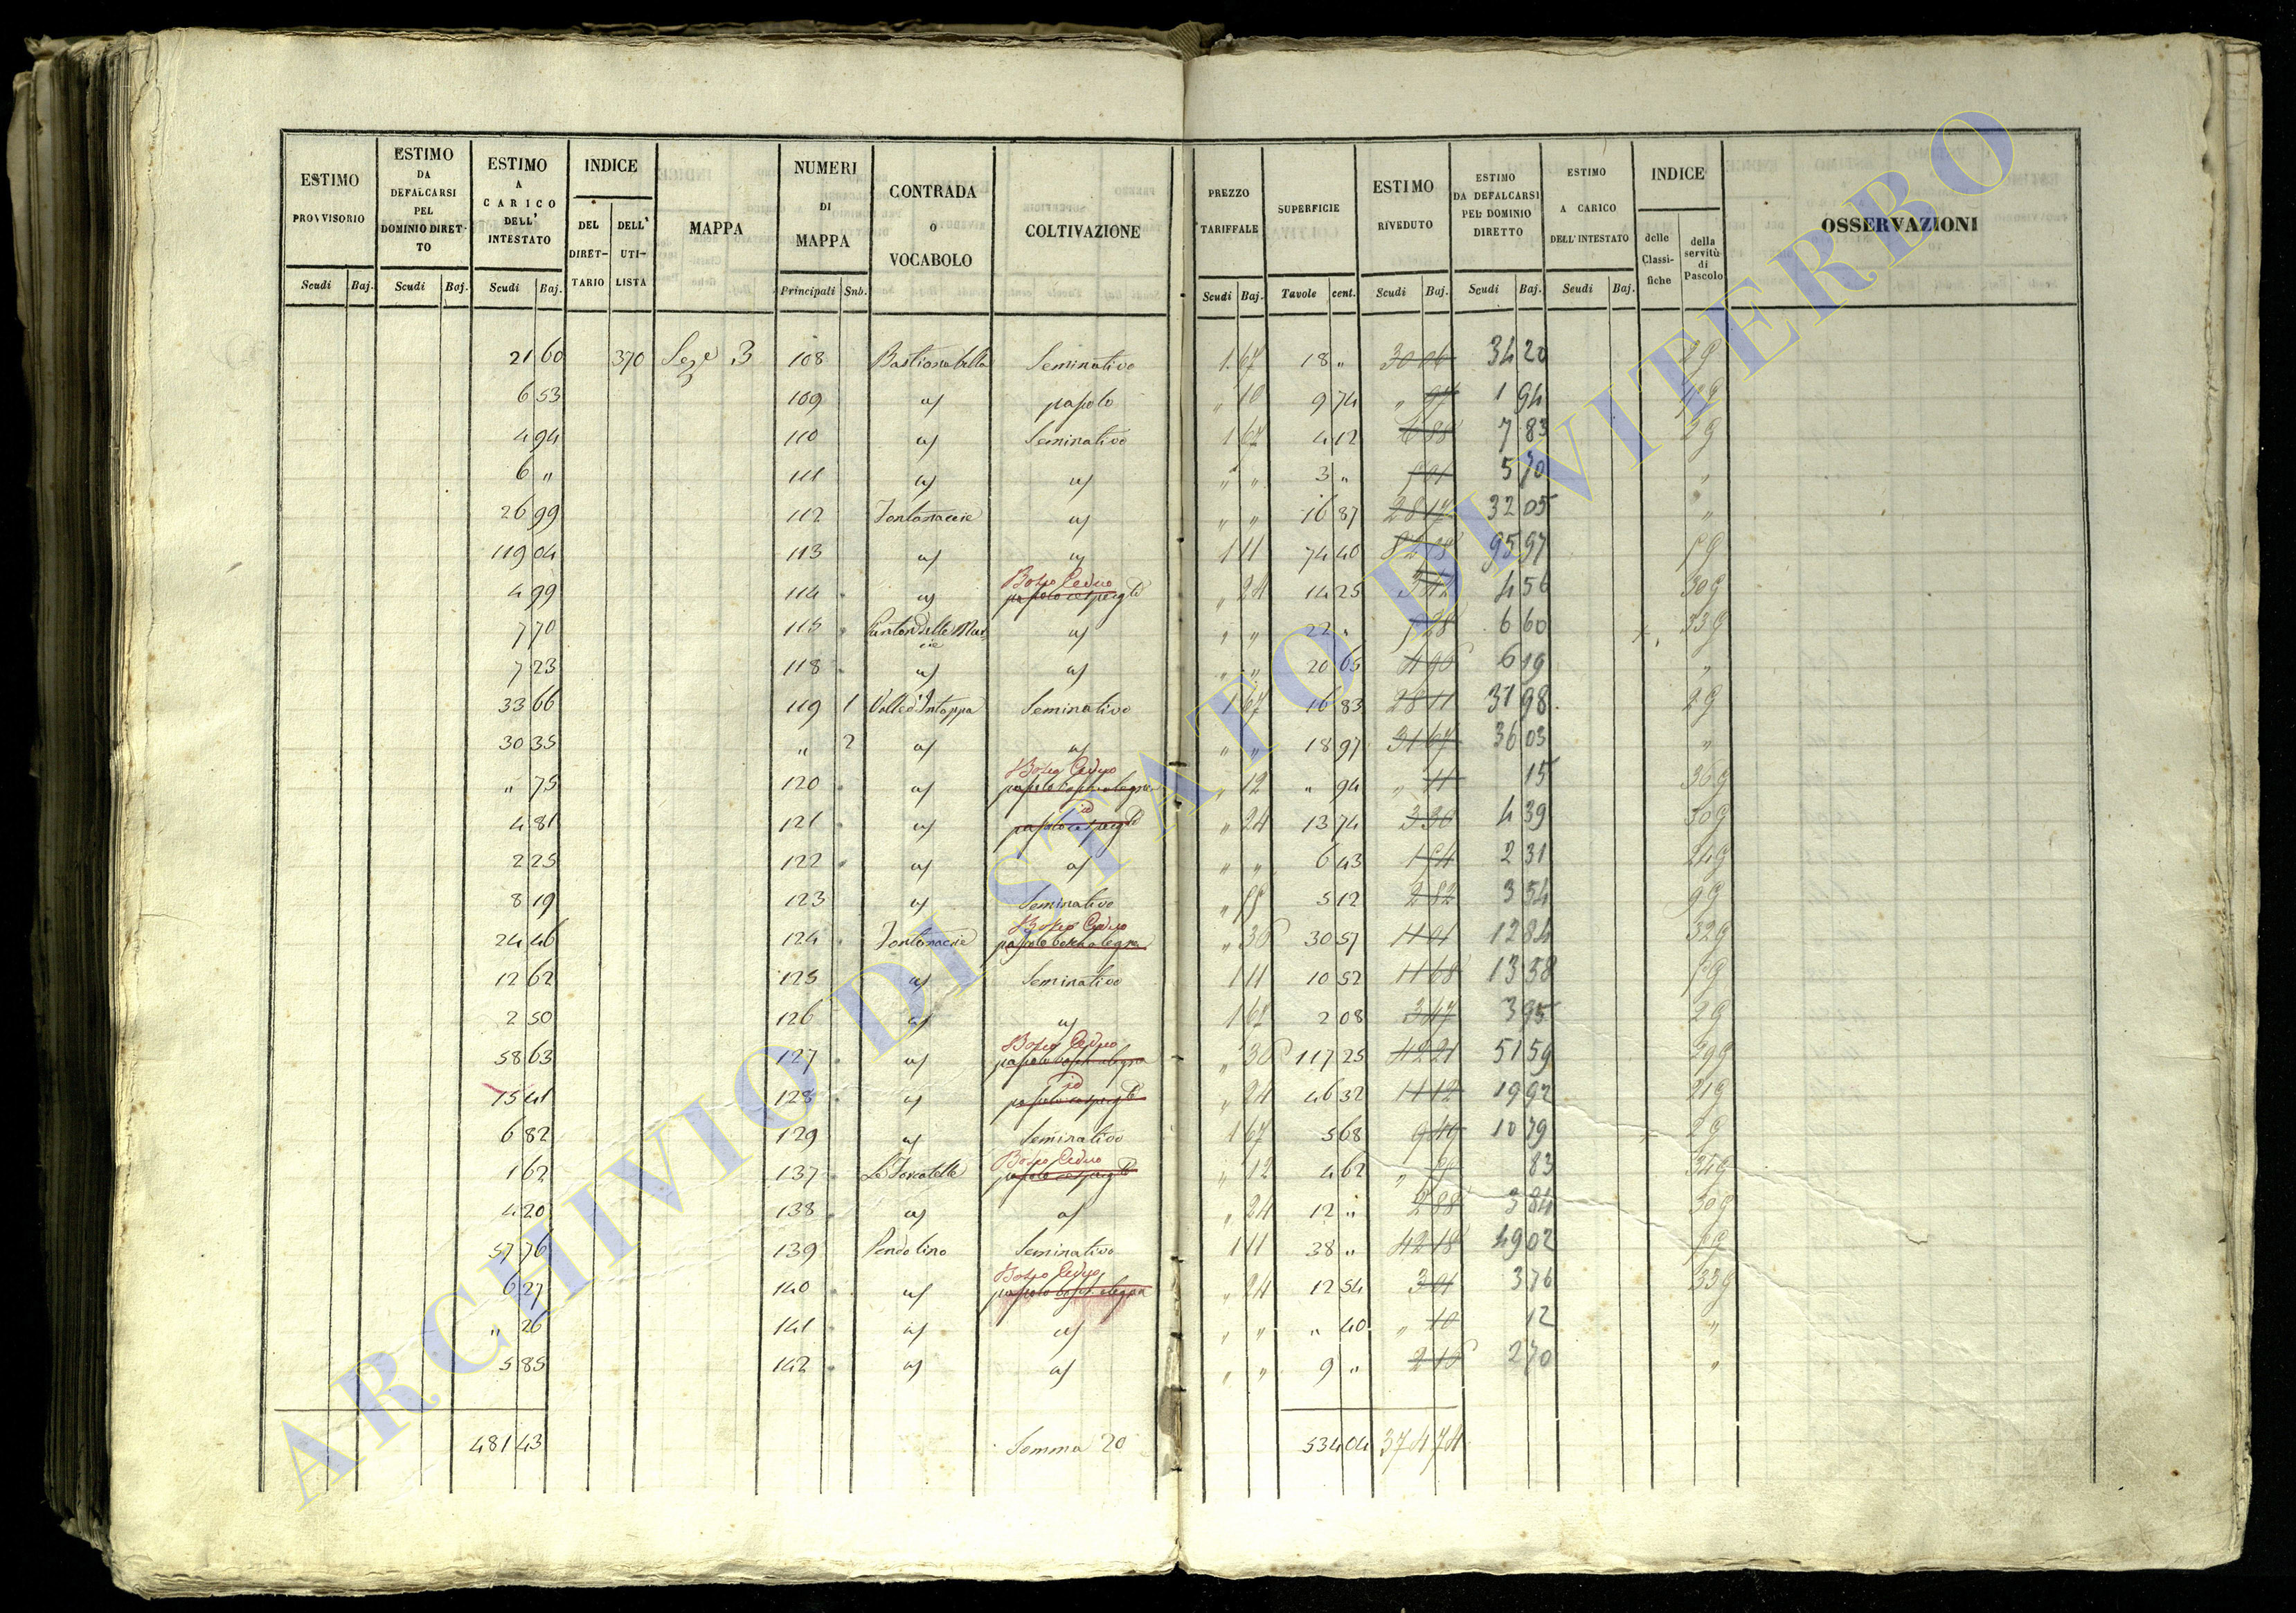 ESTIMO PROVVISORIO
ESTIMO DA DEFALCARSI PEL DOMINIO DIRET-TO
ESTIMO A CARICO DELL' INTESTATO
INDICE
DEL DIRET-TARIO
DELL' UTI-LISTA
MAPPA
NUMERI DI MAPPA
CONTRADA O VOCABOLO
COLTIVAZIONE
PREZZO TARIFFALE
SUPERFICIE
ESTIMO RIVEDUTO
ESTIMO DA DEFALCARSI PEL DOMINIO DIRETTO
ESTIMO A CARICO DELL'INTESTATO
INDICE
delle Classi-fiche
della servitù di Pascolo
OSSERVAZIONI
Scudi Baj. Scudi Baj. Scudi Baj. Principali Sub. Scudi Baj. Tavole cent. Scudi Baj. Scudi Baj. Scudi Baj.
21 60 370 Sez.e 3 108 Seminativo 1 67 18 " 30 06 34 20 2 9
6 53 109 a/ pascolo " 10 9 74 " 97 1 94
4 94 110 a/ Seminativo 1 67 4 12 6 88 7 83 2 9
6 " 111 a/ a/ " " 3 " 5 01 5 70 "
26 99 112 Fontanaccie a/ " " 16 87 28 17 32 05 "
119 04 113 a/ a/ 1 11 74 40 82 58 95 97
4 99 114 a/ Bosco Ceduo " 24 14 25 3 42 4 56 30 9
7 70 115 a/ " " 22 " 5 28 6 60 33 9
7 23 118 a/ a/ " " 20 65 4 96 6 19 "
33 66 119 1 Valle d'Intoppa Seminativo 1 67 16 83 28 11 31 98 2 9
30 35 " 2 a/ a/ " " 18 97 31 67 36 03 "
" 75 120 a/ Bosco Ceduo " 12 " 94 " 11 15 36 9
4 81 121 a/ id " 24 13 74 3 30 4 39 30 9
2 25 122 a/ a/ " " 6 43 1 54 2 31 24 9
8 19 123 a/ Seminativo " 55 5 12 2 82 3 54 9 9
24 46 124 Fontanaccie Bosco Ceduo " 36 30 57 11 01 12 84 32 9
12 62 125 a/ Seminativo 1 11 10 52 11 68 13 58
2 50 126 a/ a/ 1 67 2 08 3 47 3 95 2 9
58 63 127 a/ Bosco Ceduo " 36 117 25 42 21 51 59 29 9
15 41 128 a/ id " 24 46 32 11 12 19 92 21 9
6 82 129 a/ Seminativo 1 67 5 68 9 49 10 79 2 9
1 62 137 Le Forcatelle Bosco Ceduo " 12 4 62 83 34 9
4 20 138 a/ a/ " 24 12 " 2 88 3 84 30 9
57 76 139 Pendolino Seminativo 1 11 38 " 42 18 49 02
6 27 140 a/ Bosco Ceduo " 24 12 54 3 01 3 76 33 9
" 26 141 a/ a/ " " " 40 " 10 12 "
5 85 142 a/ a/ " " 9 " 2 16 2 70 "
481 43 Somma 20 534 04 374 74
ARCHIVIO DI STATO DI VITERBO